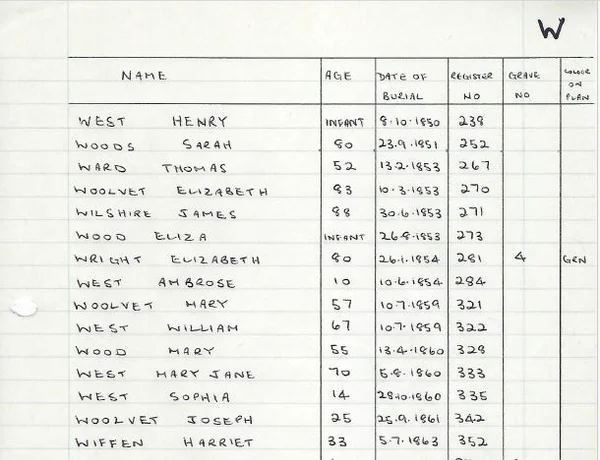 W
NAME AGE DATE OF BURIAL REGISTER NO GRAVE NO COLOUR ON PLAN
WEST HENRY INFANT 8.10.1850 238
WOODS SARAH 80 23.9.1851 252
WARD THOMAS 52 13.2.1853 267
WOOLVET ELIZABETH 83 10.3.1853 270
WILSHIRE JAMES 88 30.6.1853 271
WOOD ELIZA INFANT 26.8.1853 273
WRIGHT ELIZABETH 80 26.1.1854 281 4 GRN
WEST AMBROSE 10 10.6.1854 284
WOOLVET MARY 57 10.7.1859 321
WEST WILLIAM 67 10.7.1859 322
WOOD MARY 55 13.4.1860 328
WEST MARY JANE 70 5.8.1860 333
WEST SOPHIA 14 28.10.1860 335
WOOLVET JOSEPH 25 25.9.1861 342
WIFFEN HARRIET 33 5.7.1863 352